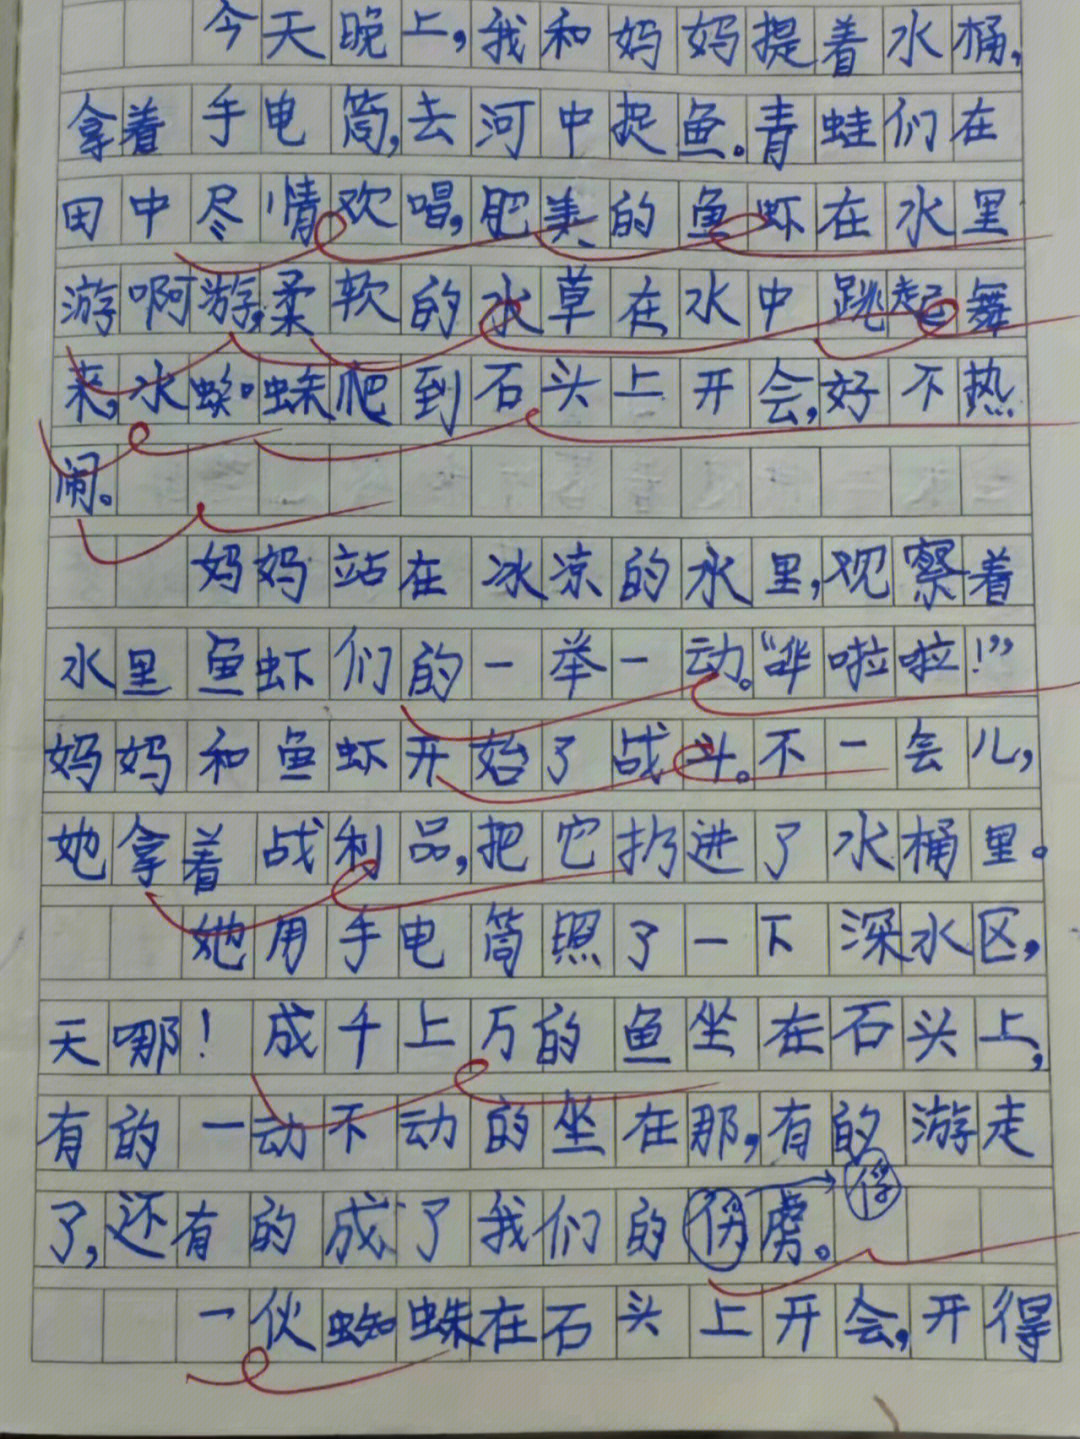 今天晚上,我和妈妈提着水桶,
拿着手电筒,去河中捉鱼。青蛙们在
田中尽情欢唱,肥美的鱼虾在水里
游啊游,柔软的水草在水中跳起舞
来,水蜘蛛爬到石头上开会,好不热
闹。
妈妈站在冰凉的水里,观察着
水里鱼虾们的一举一动。“哗啦啦!”
妈妈和鱼虾开始了战斗。不一会儿,
她拿着战利品,把它扔进了水桶里。
她用手电筒照了一下深水区,
天哪!成千上万的鱼坐在石头上,
有的一动不动的坐在那,有的游走
了,还有的成了我们的俘虏。
俘
一伙蜘蛛在石头上开会,开得